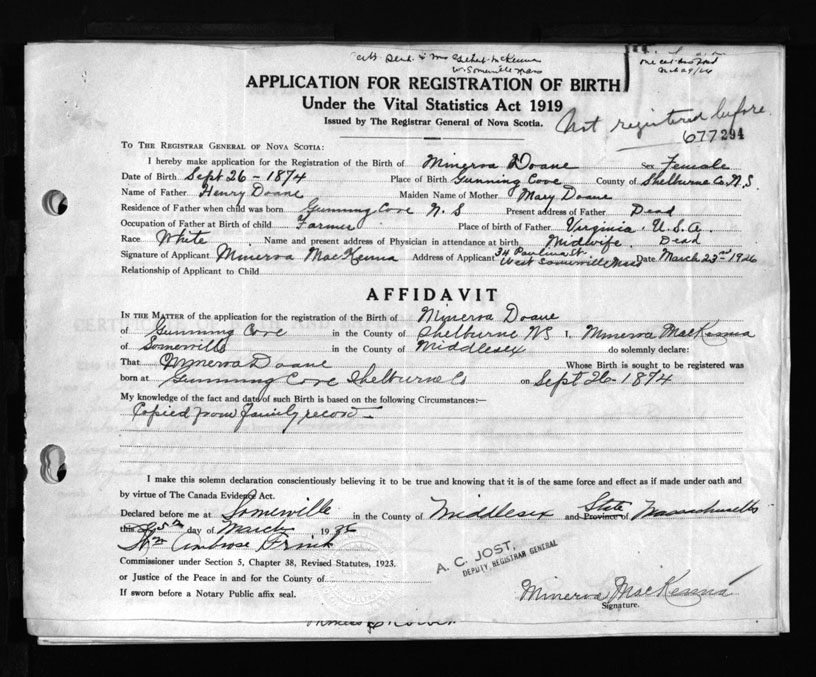 W. Somerville Mass
APPLICATION FOR REGISTRATION OF BIRTH
Under the Vital Statistics Act 1919
Issued by The Registrar General of Nova Scotia.
Not registered before
677294
TO THE REGISTRAR GENERAL OF NOVA SCOTIA:
I hereby make application for the Registration of the Birth of Minerva Doane Sex Female
Date of Birth Sept 26 - 1874 Place of Birth Gunning Cove County of Shelburne Co N.S.
Name of Father Henry Doane Maiden Name of Mother Mary Doane
Residence of Father when child was born Gunning Cove N. S Present address of Father Dead
Occupation of Father at Birth of child Farmer Place of birth of Father Virginia. U.S.A.
Race White Name and present address of Physician in attendance at birth Midwife. Dead
Signature of Applicant Minerva MacKenna Address of Applicant 34 Paulina St. West Somerville Mass Date March 23rd 1926
Relationship of Applicant to Child
AFFIDAVIT
IN THE MATTER of the application for the registration of the Birth of Minerva Doane
of Gunning Cove in the County of Shelburne NS I, Minerva MacKenna
of Somerville in the County of Middlesex do solemnly declare:
That Minerva Doane Whose Birth is sought to be registered was
born at Gunning Cove Shelburne Co on Sept 26 - 1874
My knowledge of the fact and date of such Birth is based on the following Circumstances:—
Copied from family record
I make this solemn declaration conscientiously believing it to be true and knowing that it is of the same force and effect as if made under oath and
by virtue of The Canada Evidence Act.
Declared before me at Somerville in the County of Middlesex and State Province of Massachusetts
this day of March 1926
Ambrose
Commissioner under Section 5, Chapter 38, Revised Statutes, 1923.
or Justice of the Peace in and for the County of
If sworn before a Notary Public affix seal.
A. C. JOST,
DEPUTY REGISTRAR GENERAL
Minerva MacKenna
Signature.